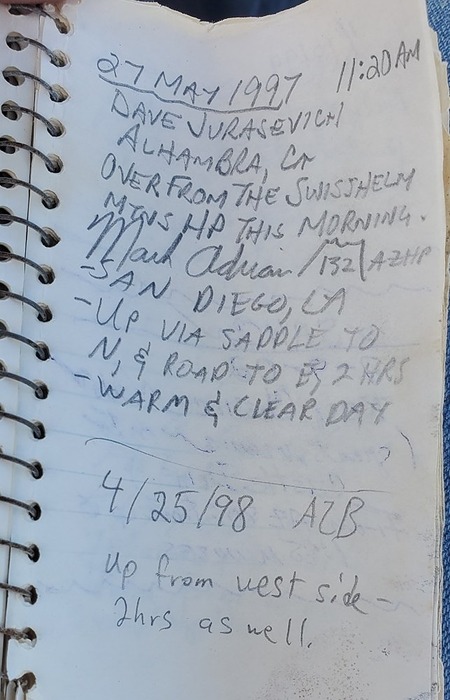 27 MAY 1997 11:20 AM
DAVE JURASEVICH
ALHAMBRA, CA
OVER FROM THE SWISSHELM
MTNS HP THIS MORNING.
Mark Adrian /132\ AZHP
- SAN DIEGO, CA
- UP VIA SADDLE TO
N, & ROAD TO E, 2 HRS
- WARM & CLEAR DAY
4/25/98 AZB
Up from west side -
2hrs as well.